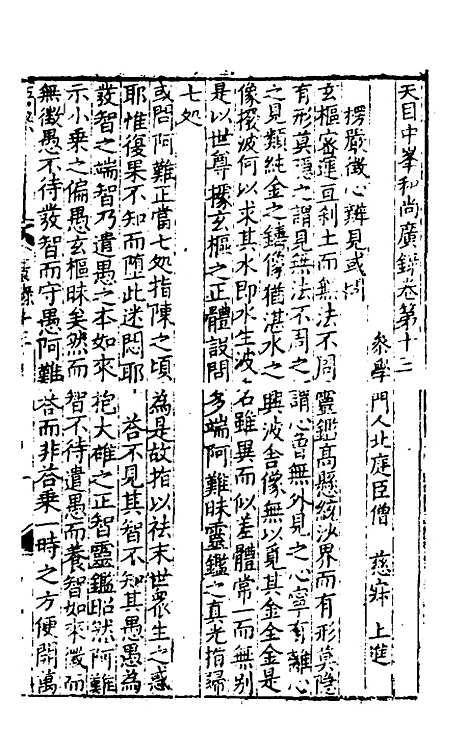 天目中峯和尚廣錄卷第十三
參學門人北庭臣僧 慈寂 上進
楞嚴徵心辯見或問
玄樞密運亘刹土而無法不周靈鑑高懸絃沙界而有形莫隱
有形莫隱之謂見無法不周之謂心曾無外見之心寧有離心
之見類純金之鑄像猶湛水之興波舍像無以覓其金金是
像撥波何以求其水即水生波名雖異而似差體常一而無別
是以世尊據玄樞之正體設問多端阿難昧靈鑑之真光指歸
七處
或問阿難正當七處指陳之頃為是故指以袪末世眾生之惑
耶惟復果不知而隨此迷悶耶 荅不見其智不知其愚愚為
發智之端智乃遣愚之本如來抱大碓之正智靈鑑昭然阿難
示小乘之偏愚玄樞昧矣然而智不待遣愚而養智如來徵而
無徵愚不待發智而守愚阿難荅而非荅乘一時之方便開萬